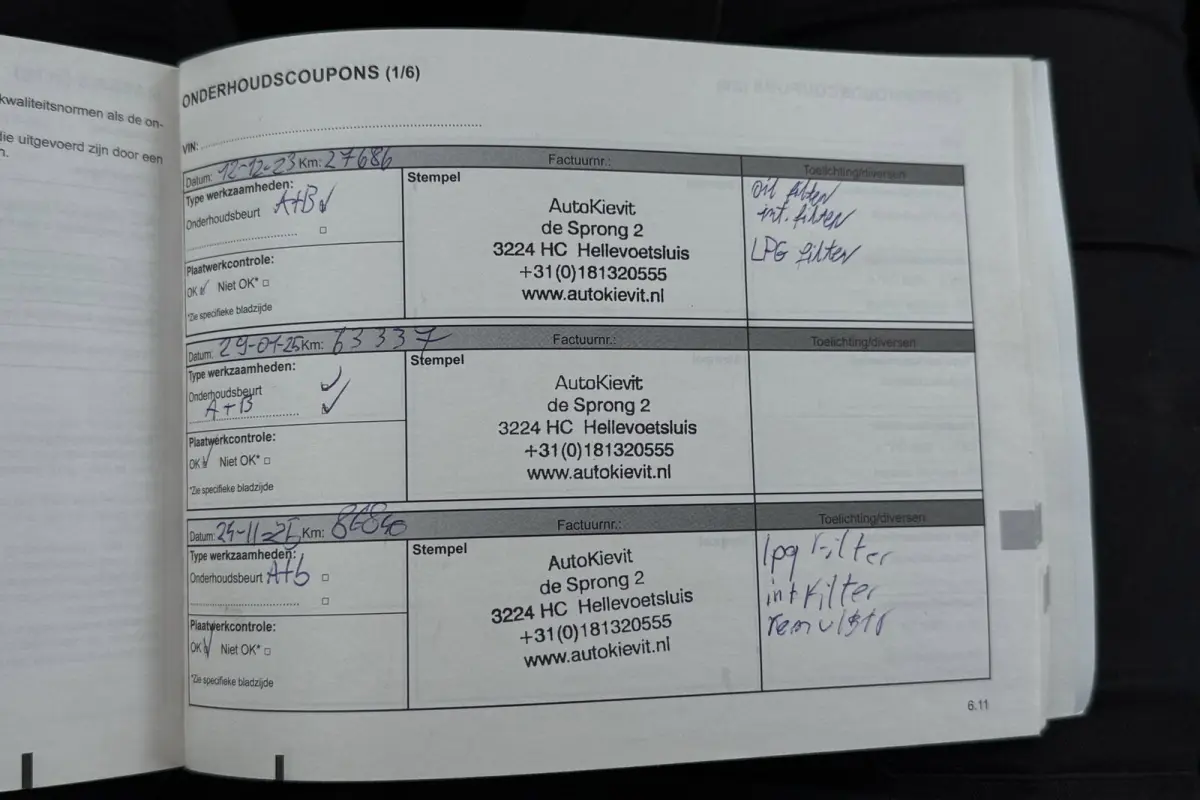 kwaliteitsnormen als de on-
die uitgevoerd zijn door een
n.
ONDERHOUDSCOUPONS (1/6)
VIN:
Datum: 12-12-23 Km: 27686
Factuurnr.:
Toelichting/diversen
Type werkzaamheden:
Onderhoudsbeurt A+B
Plaatwerkcontrole:
OK Niet OK*
*Zie specifieke bladzijde
Stempel
AutoKievit
de Sprong 2
3224 HC Hellevoetsluis
+31(0)181320555
www.autokievit.nl
oil filter
int. filter
LPG filter
Datum: 29-01-25 Km: 63337
Factuurnr.:
Toelichting/diversen
Type werkzaamheden:
Onderhoudsbeurt
A+B
Plaatwerkcontrole:
OK Niet OK*
*Zie specifieke bladzijde
Stempel
AutoKievit
de Sprong 2
3224 HC Hellevoetsluis
+31(0)181320555
www.autokievit.nl
Datum: Km:
Factuurnr.:
Toelichting/diversen
Type werkzaamheden:
Onderhoudsbeurt A+b
Plaatwerkcontrole:
OK Niet OK*
*Zie specifieke bladzijde
Stempel
AutoKievit
de Sprong 2
3224 HC Hellevoetsluis
+31(0)181320555
www.autokievit.nl
lpg Filter
int Filter
6.11